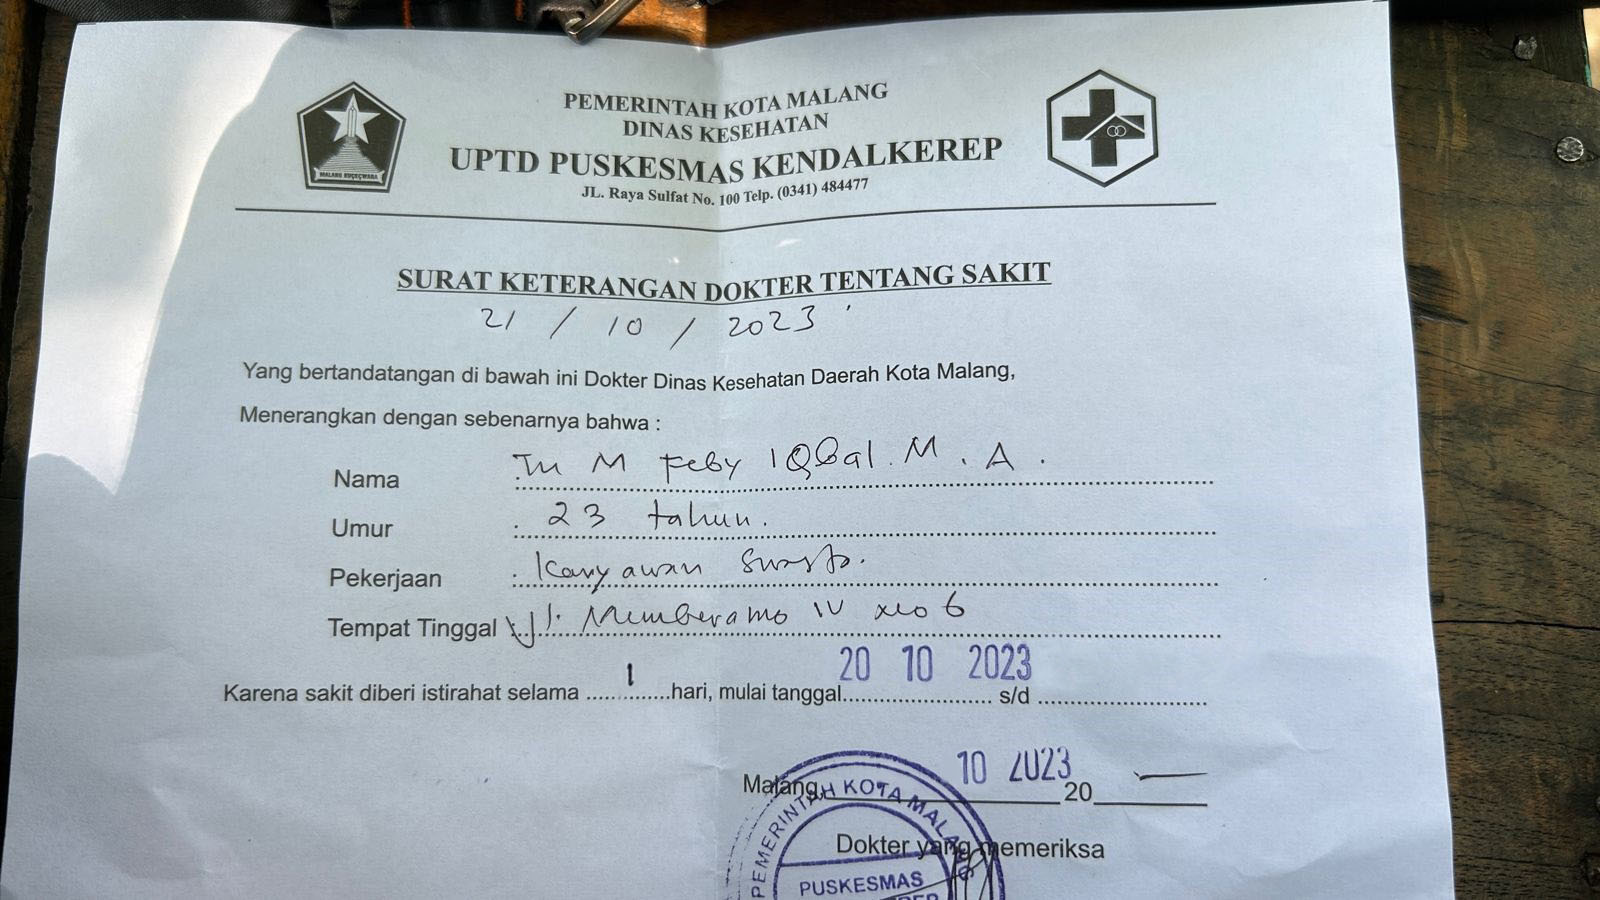 MALANG KUÇEÇWARA
PEMERINTAH KOTA MALANG
DINAS KESEHATAN
UPTD PUSKESMAS KENDALKEREP
JL. Raya Sulfat No. 100 Telp. (0341) 484477
SURAT KETERANGAN DOKTER TENTANG SAKIT
21 / 10 / 2023
Yang bertandatangan di bawah ini Dokter Dinas Kesehatan Daerah Kota Malang,
Menerangkan dengan sebenarnya bahwa :
Nama : Tn M Feby IQBal. M. A.
Umur : 23 tahun.
Pekerjaan : Karyawan Swasta.
Tempat Tinggal : Jl. Memberamo IV no 6
Karena sakit diberi istirahat selama ..... 1 ..... hari, mulai tanggal 20 10 2023 s/d ..............
Malang, 10 2023 20 —
Dokter yang memeriksa
PEMERINTAH KOTA MALANG
PUSKESMAS